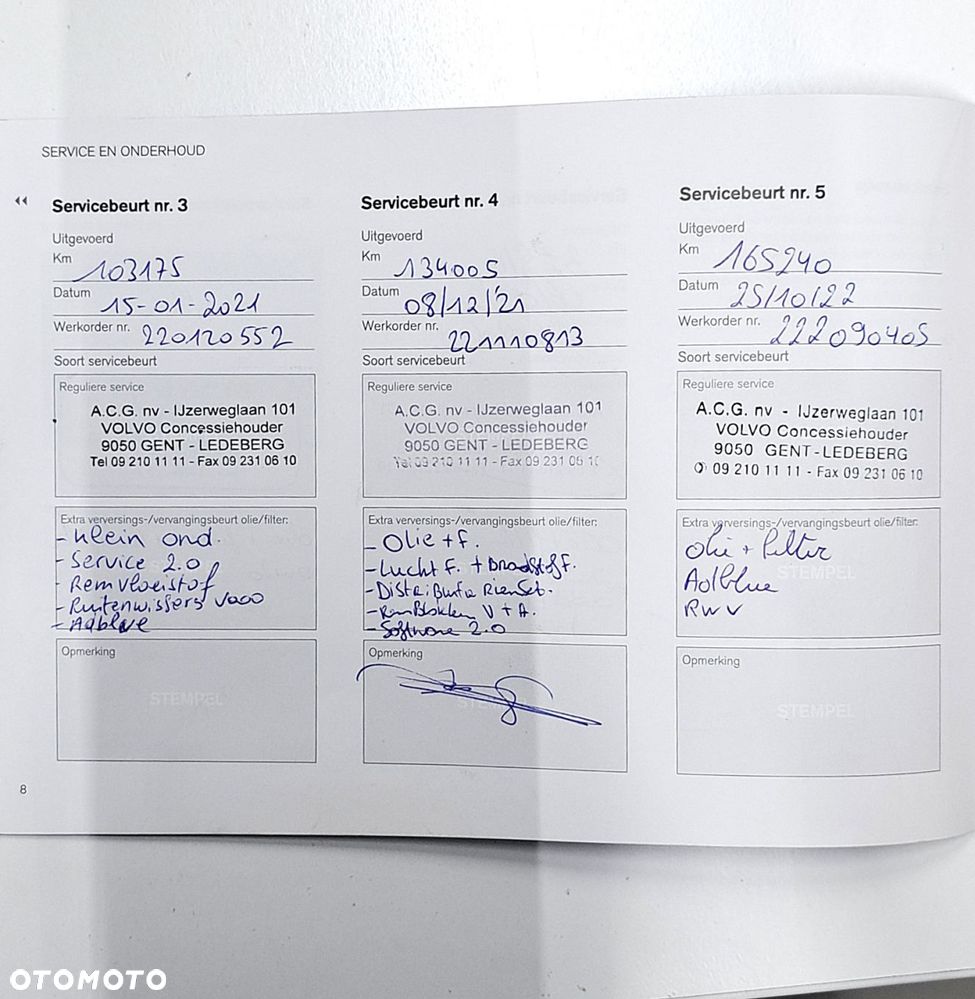 SERVICE EN ONDERHOUD
Servicebeurt nr. 3
Uitgevoerd
Km 103175
Datum 15-01-2021
Werkorder nr. 220120552
Soort servicebeurt
Reguliere service
A.C.G. nv - IJzerweglaan 101
VOLVO Concessiehouder
9050 GENT - LEDEBERG
Tel 09 210 11 11 - Fax 09 231 06 10
Extra verversings-/vervangingsbeurt olie/filter:
- Klein ond.
- Service 2.0
- Remvloeistof
- Ruitenwissers voor
- Adblue
Opmerking
STEMPEL
Servicebeurt nr. 4
Uitgevoerd
Km 134005
Datum 08/12/'21
Werkorder nr. 221110813
Soort servicebeurt
Reguliere service
A.C.G. nv - IJzerweglaan 101
VOLVO Concessiehouder
9050 GENT - LEDEBERG
Tel 09 210 11 11 - Fax 09 231 06 10
Extra verversings-/vervangingsbeurt olie/filter:
- Olie + F.
- Lucht F. + Brandstof F.
- Distributie Riem Set.
- Remblokken V + A.
- Software 2.0
Opmerking
Servicebeurt nr. 5
Uitgevoerd
Km 165240
Datum 25/10/22
Werkorder nr. 222090405
Soort servicebeurt
Reguliere service
A.C.G. nv - IJzerweglaan 101
VOLVO Concessiehouder
9050 GENT - LEDEBERG
✆ 09 210 11 11 - Fax 09 231 06 10
Extra verversings-/vervangingsbeurt olie/filter:
Olie + filter
STEMPEL
Adblue
RWV
Opmerking
STEMPEL
8
OTOMOTO